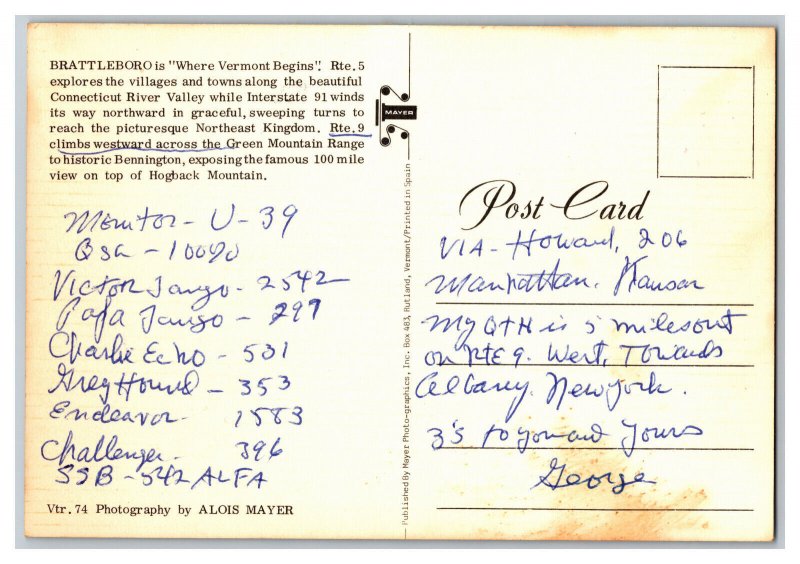 BRATTLEBORO is "Where Vermont Begins"! Rte. 5
explores the villages and towns along the beautiful
Connecticut River Valley while Interstate 91 winds
its way northward in graceful, sweeping turns to
reach the picturesque Northeast Kingdom. Rte. 9
climbs westward across the Green Mountain Range
to historic Bennington, exposing the famous 100 mile
view on top of Hogback Mountain.
Monitor - U-39
Qsa - 100%
Victor Tango - 2542
Papa Tango - 297
Charlie Echo - 531
GreyHound - 353
Endeavor - 1583
Challenger 396
SSB - 542 ALFA
Vtr. 74 Photography by ALOIS MAYER
MAYER
Published By Mayer Photo-graphics, Inc. Box 483, Rutland, Vermont/Printed in Spain
Post Card
VIA - Howard, 206
Manhattan, Kansas
My QTH is 5 miles out
on RTE 9. West, Towards
Albany, New York.
3's to you and Yours
George